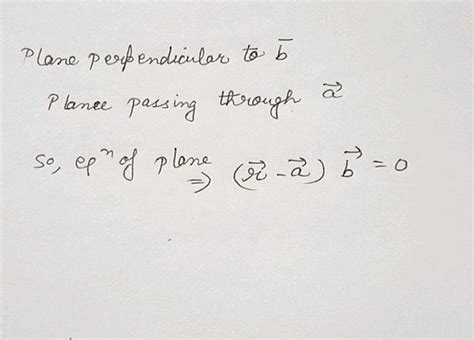 Plane perpendicular to b̅
Planee passing through a⃗
So, eqⁿ of plane
⇒ (r⃗ - a⃗) b⃗ = 0